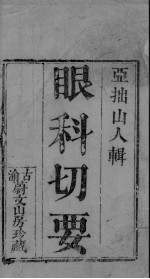 亞拙山人輯
眼科切要
古渝蔚文山房珍藏